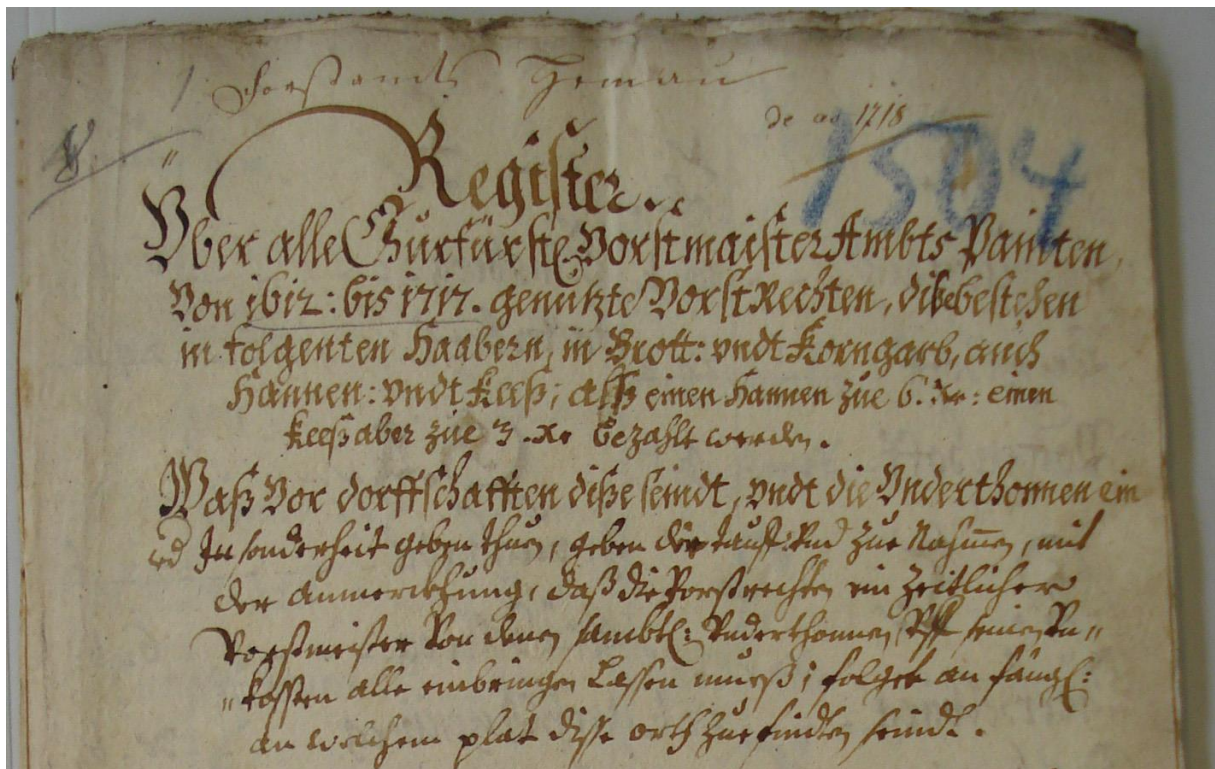 Forstamts Hemau
de ao 1718
1504
Register
Yber alle Churfürstl. Vorstmaister Ambts Painten,
Von 1612: bis 1717. genutzte Vorst Rechten, dise bestehen
in folgenten Haabern, in Brott: vndt Korngarb, auch
Hannen: vndt Keeß; alß einen Hannen zue 6. Xr: einen
Keeß aber zue 3. Xr bezahlt werden.
Waß Vor dorffschafften diße seindt, vndt die Vnderthonnen ein
ed Jnsonderheit geben thuen, geben der tauf: Vnd Zue Nahmen, mit
der anmerckhung, daß die Vorstrechten ein Zeitlicher
Vorstmeister Von denen sambtl: Vnderthonnen Vff seinen Vn„
„kossten alle einbringen Lassen mueß; folget an fängl:
an welchem plat disse orth Zue findten seindt.